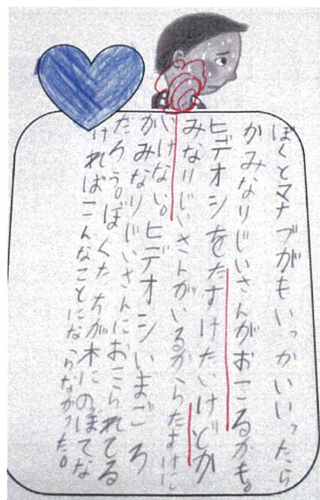 ぼくとマナブがもいっかいいったら
かみなりじいさんがおこるかも。
ヒデオシをたすけたいけどか
みなりじいさんがいるからたすけに
いけない。ヒデオシいまごろ
かみなりじいさんにおこられてる
だろう。ぼくたちが木にのぼてな
ければこんなことにならなかった。